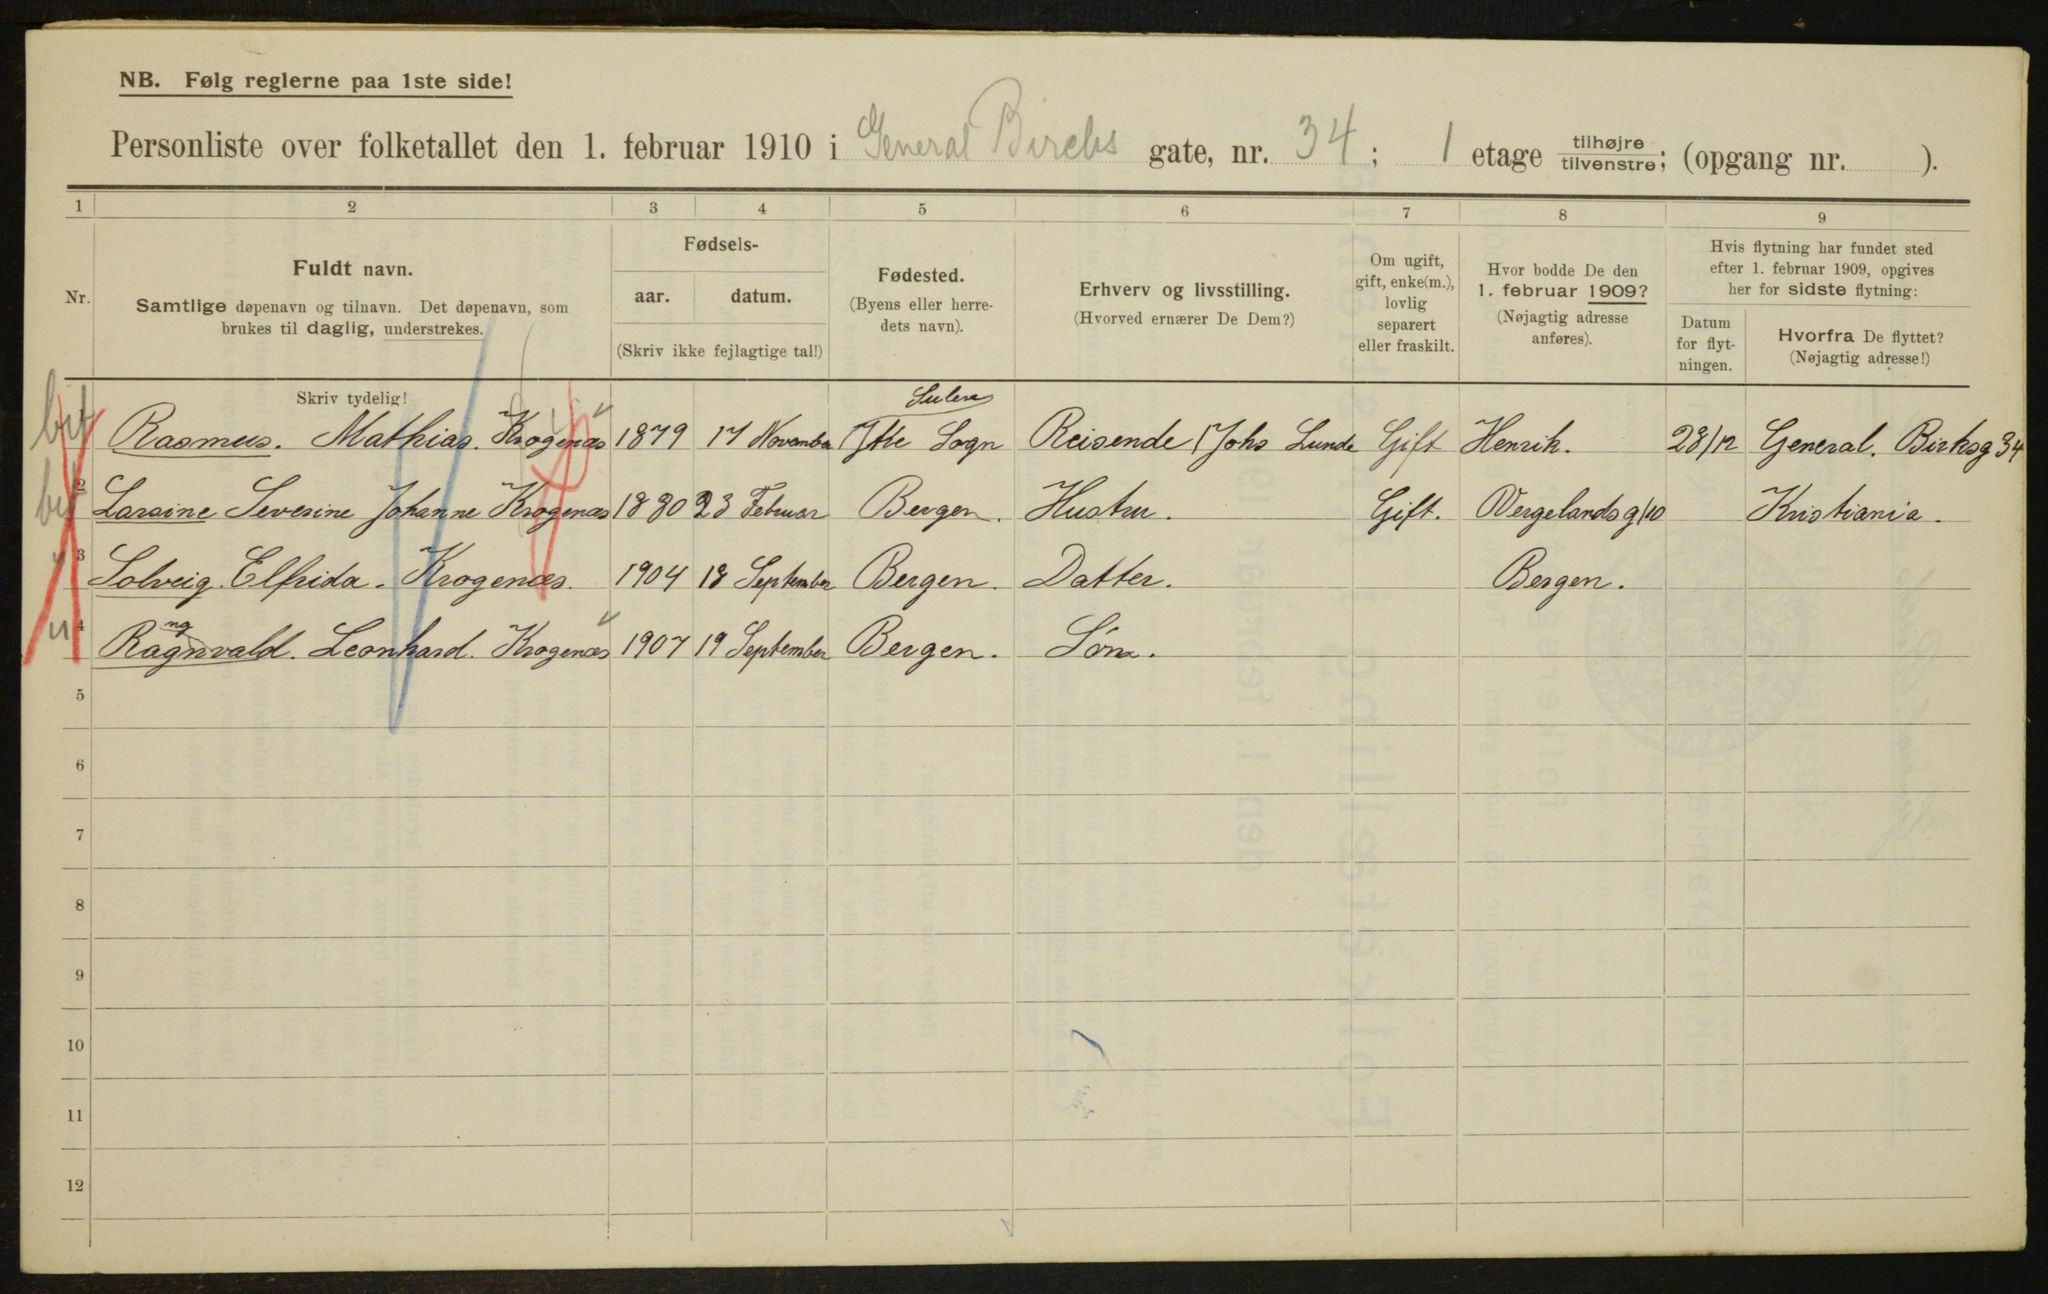 NB. Følg reglerne paa 1ste side!
Personliste over folketallet den 1. februar 1910 i General Birchs gate, nr. 34 ; 1 etage tilhøjre tilvenstre; (opgang nr. ).
1 2 3 4 5 6 7 8 9
Nr.
Fuldt navn.
Samtlige døpenavn og tilnavn. Det døpenavn, som
brukes til daglig, understrekes.
Fødsels-
aar. datum.
(Skriv ikke fejlagtige tal!)
Fødested.
(Byens eller herre-
dets navn).
Erhverv og livsstilling.
(Hvorved ernærer De Dem?)
Om ugift,
gift, enke(m.),
lovlig
separert
eller fraskilt.
Hvor bodde De den
1. februar 1909?
(Nøjagtig adresse
anføres).
Hvis flytning har fundet sted
efter 1. februar 1909, opgives
her for sidste flytning:
Datum
for flyt-
ningen.
Hvorfra De flyttet?
(Nøjagtig adresse!)
Skriv tydelig!
Sulen
Rasmus. Mathias. Krogenæs 1879 17 November Ytre Sogn Reisende Johs Lunde Gift Henrik. 28/12 General. Birksg 34
2 Larsine Severine Johanne Krogenæs 1880 23 Februar Bergen. Hustru. Gift. Wergelandsg 10 Kristiania.
3 Solveig. Elfrida. Krogenæs. 1904 18 September Bergen. Datter. Bergen.
ng
4 Ragnvald. Leonhard. Krogenæs 1907 19 September Bergen. Søn.
5
6
7
8
9
10
11
12